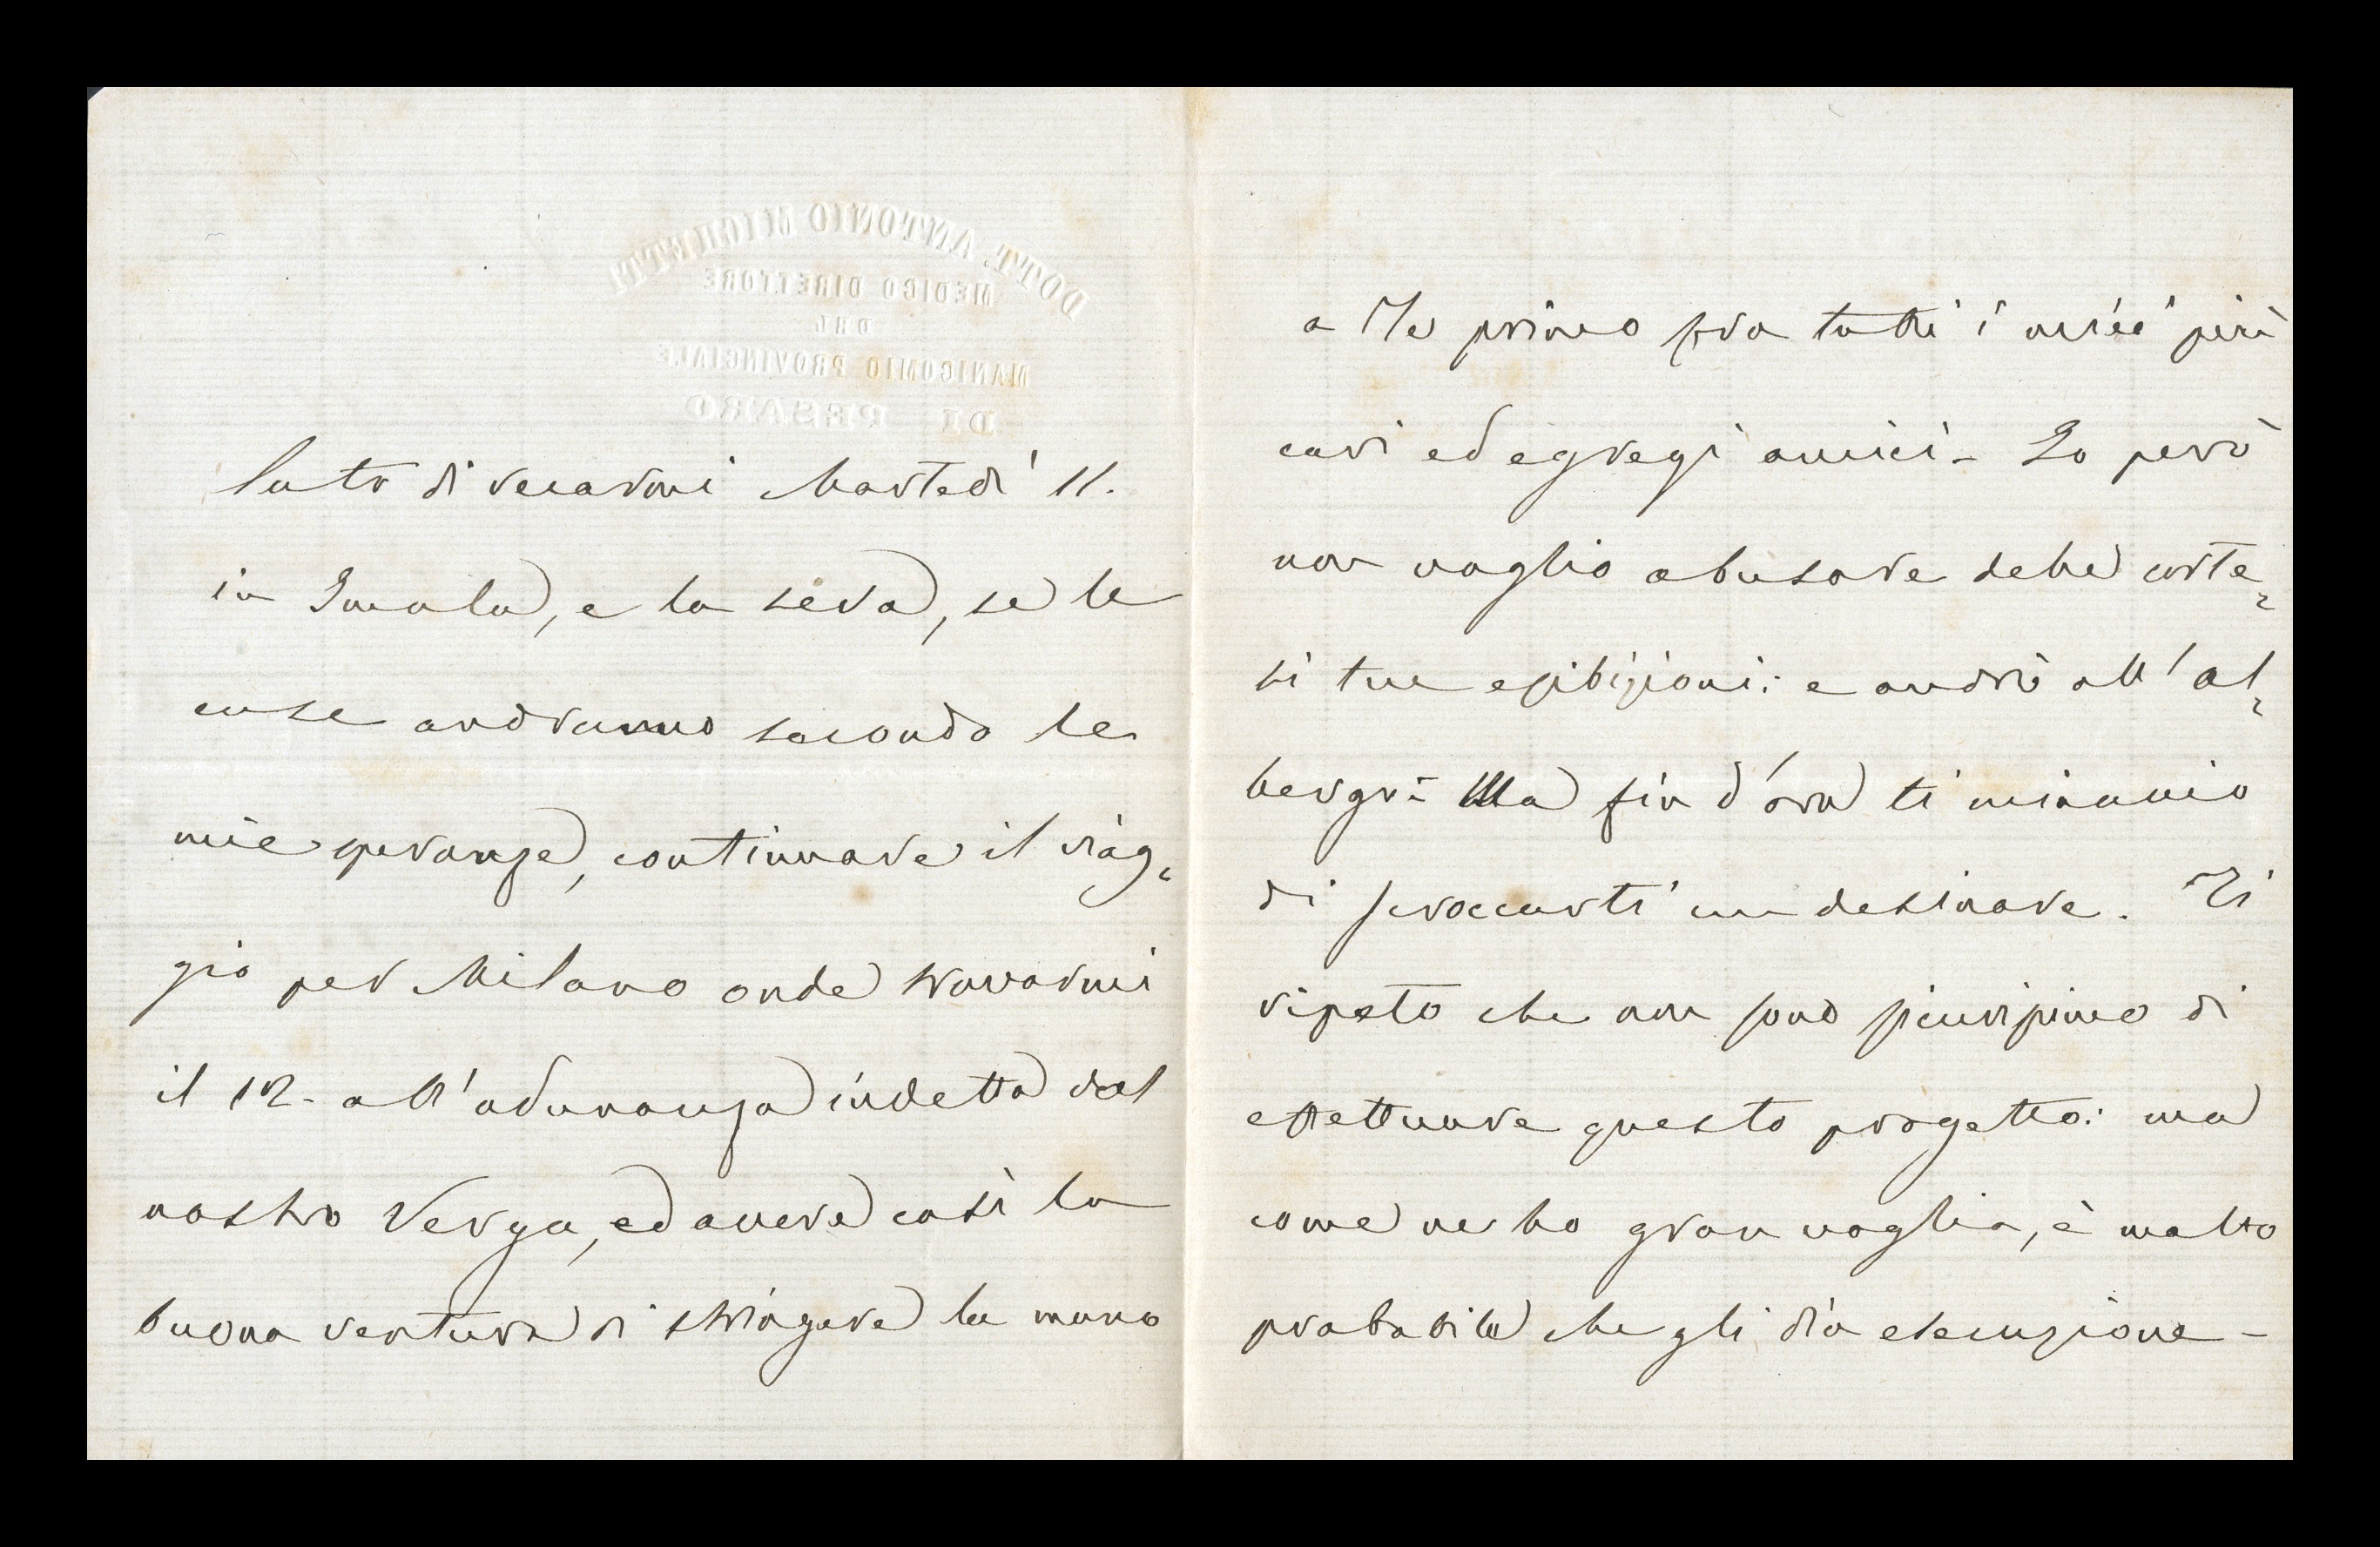 DOTT. ANTONIO MICHETTI
MEDICO DIRETTORE
DEL
MANICOMIO PROVINCIALE
DI PESARO
luto di recarmi Martedì 11.
in Imola, e la sera, se le
cose andranno secondo le
mie speranze, continuare il viag-
gio per Milano onde trovarmi
il 12 - all'adunanza indetta dal
nostro Verga, ed avere così la
buona ventura di stringere la mano
a Te primo fra tutti i miei più
cari ed egregi amici - Io però
non voglio abusare delle corte-
si tue esibizioni: e andrò all'al-
bergo - Ma fin d'ora ti minaccio
di scroccarti un desinare. Ti
ripeto che non sono sicurissimo di
effettuare questo progetto: ma
come ne ho gran voglia, è molto
probabile che gli dia esecuzione -